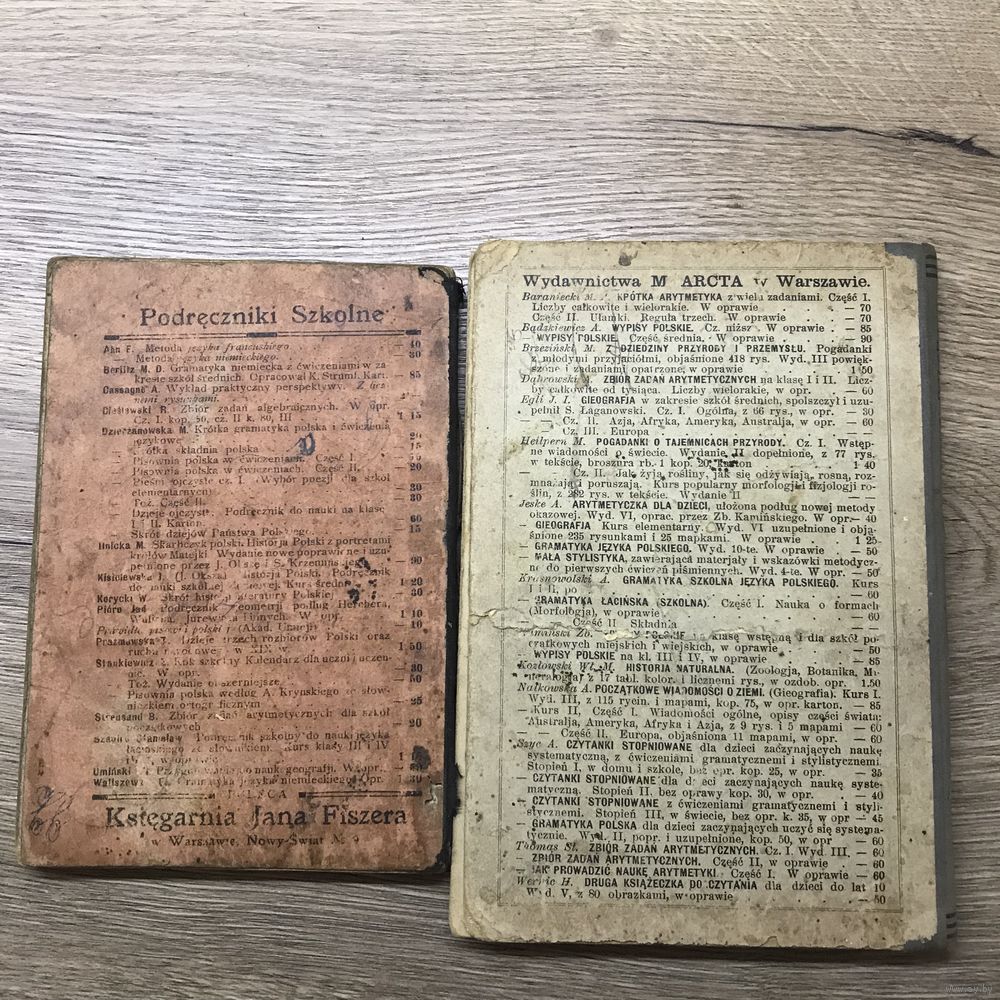 Podręczniki Szkolne
Ahn F. Metoda języka francuskiego. — 40
— Metoda języka niemieckiego. — 30
Berlitz M. D. Gramatyka niemiecka z ćwiczeniami w za
kresie szkół średnich. Opracował K. Struml. Kart. — 85
Cassagne A. Wykład praktyczny perspektywy.
rysunkami.
Cieślewski R. Zbiór zadań algebraicznych. W opr.
Cz. I. kop. 50, cz. II k. 80, III 1 15
Dzierżanowska M. Krótka gramatyka polska i ćwiczenia
językowe
Krótka składnia polska 15
— Pisownia polska w ćwiczeniach. Część I.
— Pisownia polska w ćwiczeniach. Część II. — 20
Pieśni ojczyste cz. I. Wybór poezji dla szkół
elementarnych — 30
Toż. Część II. — 30
— Dzieje ojczyste. Podręcznik do nauki na klasę
I i II. Karton. — 60
— Skrót dziejów Państwa Polskiego. 15
M. Skarbczyk polski. Historja Polski z portretami
królów Matejki. Wydanie nowe poprawione i uzu-
pełnione przez J.
J. Historja Polski. Podręcznik
do nauki szkolnej Kurs średni. 1 20
Korycki W. Skrót historji literatury Polskiej — 30
Podręcznik geometrji podług
i innych. W opr. 1 10
Prawidła pisowni polskiej Akad. Umiej. — 10
Dzieje trzech rozbiorów Polski oraz
ruchu w XIX w. 1 50
Rok szkolny Kalendarz dla uczni i uczen-
nic. W opr. — 30
— Toż. Wydanie obszerniejsze. — 50
Pisownia polska według A. Kryńskiego ze słow-
niczkiem ortograficznym — 25
B. Zbiór zadań arytmetycznych dla szkół
początkowych
Stanisław Podręcznik szkolny do nauki języka
łacińskiego ze słownikiem. Kurs klasy III i IV
Umiński nauk geografji. W opr.
Gramatyka języka niemieckiego. Opr. 1 30
POLECA
Księgarnia Jana Fiszera
w Warszawie, Nowy-Świat №
Wydawnictwa M ARCTA w Warszawie.
Baraniecki M. A. KRÓTKA ARYTMETYKA z wielu zadaniami. Część I.
Liczby całkowite i wielorakie. W oprawie — 70
Część II. Ułamki. Reguła trzech. W oprawie — 70
Bądzkiewicz A. WYPISY POLSKIE. Cz. niższ. W oprawie — 85
— WYPISY POLSKIE. Część średnia. W oprawie — 90
Brzeziński M. Z DZIEDZINY PRZYRODY I PRZEMYSŁU. Pogadanki
z młodymi przyjaciółmi, objaśnione 418 rys. Wyd. III powięk-
szone i zadaniami opatrzone, w oprawie 1 50
Dąbrowski M. ZBIÓR ZADAŃ ARYTMETYCZNYCH na klasę I i II. Licz-
by całkowite od tysiąca. Liczby wielorakie, w opr. — 60
Egli J. I. GIEOGRAFJA w zakresie szkół średnich, spolszczył i uzu-
pełnił S. Łaganowski. Cz. I. Ogólna, z 66 rys., w opr. — 30
— Cz. II. Azja, Afryka, Ameryka, Australja, w opr. — 60
Cz. III. Europa — 60
Heilpern M. POGADANKI O TAJEMNICACH PRZYRODY. Cz. I. Wstęp-
ne wiadomości o świecie. Wydanie II dopełnione, z 77 rys.
w tekście, broszura rb. 1 kop. 20, karton 1 40
— Cz. II. Jak żyją rośliny, jak się odżywiają, rosną, roz-
mnażają i poruszają. Kurs popularny morfologji i fizjologji ro-
ślin, z 282 rys. w tekście. Wydanie II
Jeske A. ARYTMETYCZKA DLA DZIECI, ułożona podług nowej metody
okazowej. Wyd. VI, oprac. przez Zb. Kamińskiego. W opr. — 40
— GIEOGRAFJA Kurs elementarny. Wyd. VI uzupełnione i obja-
śnione 235 rysunkami i 25 mapkami. W oprawie 1 25
— GRAMATYKA JĘZYKA POLSKIEGO. Wyd. 10-te. W oprawie — 50
— MAŁA STYLISTYKA, zawierająca materjały i wskazówki metodycz-
ne do pierwszych ćwiczeń piśmiennych. Wyd. 4-te. W opr. — 50
Krasnowolski A. GRAMATYKA SZKOLNA JĘZYKA POLSKIEGO. Kurs
I i II, po — 60
— GRAMATYKA ŁACIŃSKA (SZKOLNA). Część I. Nauka o formach
(Morfologja), w oprawie — 60
— Część II. Składnia — 60
Kamiński Zb. WYPISY POLSKIE na klasę wstępną i dla szkół po-
czątkowych miejskich i wiejskich, w oprawie — 50
— WYPISY POLSKIE na kl. III i IV, w oprawie — 85
Kozłowski Wł. M. HISTORJA NATURALNA. (Zoologja, Botanika, Mi-
neralogja) z 17 tabl. kolor. i licznemi rys., w ozdob. opr. 1.50
Nałkowska A. POCZĄTKOWE WIADOMOŚCI O ZIEMI. (Gieografja). Kurs I.
Wyd. III, z 115 rycin. i mapkami, kop. 75, w opr. karton. — 85
— Kurs II. Część I. Wiadomości ogólne, opisy części świata:
Australja, Ameryka, Afryka i Azja, z 9 rys. i 5 mapami — 60
— Część II. Europa, objaśniona 11 mapami, w opr. — 60
Szyc A. CZYTANKI STOPNIOWANE dla dzieci zaczynających naukę
systematyczną, z ćwiczeniami gramatycznemi i stylistycznemi.
Stopień I, w domu i szkole, bez opr. kop. 25, w opr. — 35
— CZYTANKI STOPNIOWANE dla dzieci zaczynających naukę syste-
matyczną. Stopień II, bez oprawy kop. 30, w opr. — 40
— CZYTANKI STOPNIOWANE z ćwiczeniami gramatycznemi i styli-
stycznemi. Stopień III, w świecie, bez opr. k. 35, w opr — 45
— GRAMATYKA POLSKA dla dzieci zaczynających uczyć się systema-
tycznie. Wyd. II, popr. i uzupełnione, kop. 50, w opr — 60
Thomas St. ZBIÓR ZADAŃ ARYTMETYCZNYCH. Cz. I. Wyd III. — 60
— ZBIÓR ZADAŃ ARYTMETYCZNYCH. Część II, w oprawie — 60
— JAK PROWADZIĆ NAUKĘ ARYTMETYKI. Część I. W oprawie — 60
Wernic H. DRUGA KSIĄŻECZKA DO CZYTANIA dla dzieci do lat 10
Wyd. V, z 80 obrazkami, w oprawie — 50
www.ay.by